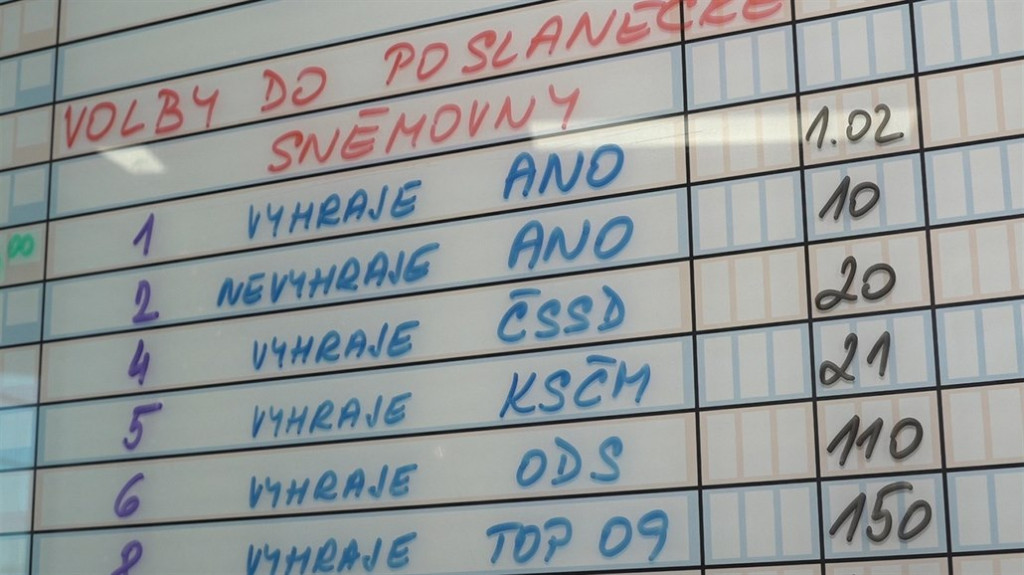 VOLBY DO POSLANECKÉ
SNĚMOVNY
1 VYHRAJE ANO 1.02
2 NEVYHRAJE ANO 10
4 VYHRAJE ČSSD 20
5 VYHRAJE KSČM 21
6 VYHRAJE ODS 110
8 VYHRAJE TOP 09 150